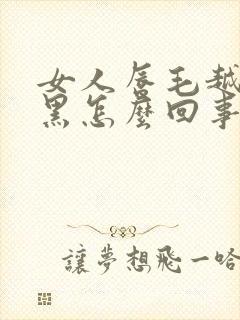 女人唇毛越
黑怎麼回事
讓夢想飛一哈